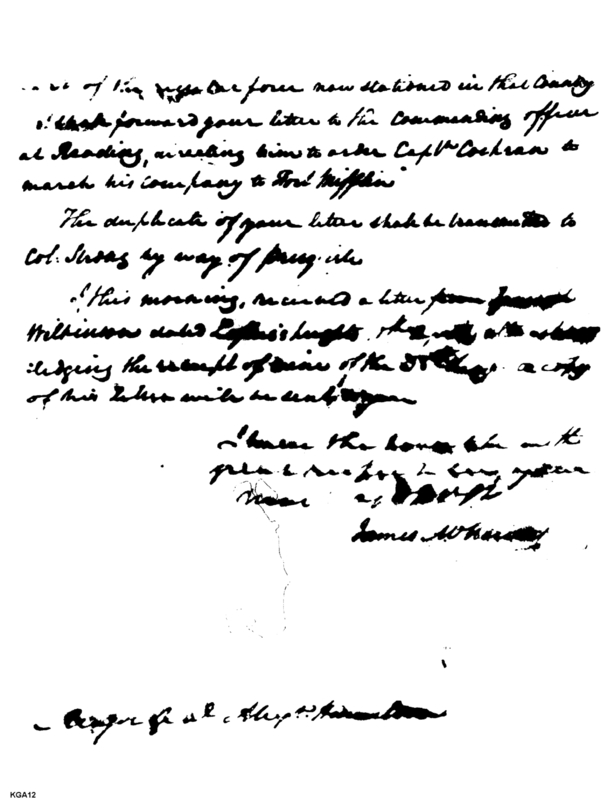 of the regular force now stationed in that County
I shall forward your letter to the Commanding officer
at Reading, directing him to order Capt. Cochran to
march his company to Fort Mifflin
The duplicate of your letter shall be transmitted to
Col: Strong by way of
I this morning, received a letter from
Wilkinson dated
:ledging the receipt of mine of the a copy
of his letter will be sent to you
I have the honor to be with
great respect
James McHenry
Major General Alexr. Hamilton
KGA12